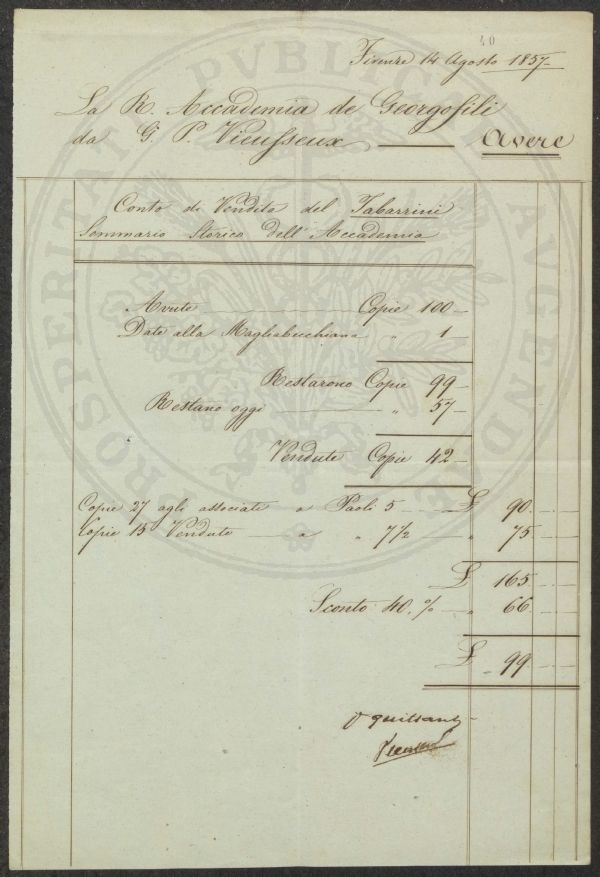 40
Firenze 14 Agosto 1857
La R. Accademia de Georgofili
da G. P. Vieusseux Avere
Conto di Vendita del Tabarrini
Sommario Storico dell'Accademia
Avute Copie 100
Date alla Magliabechiana " 1
Restarono Copie 99
Restano oggi " 57
Vendute Copie 42
Copie 27 agli associati a Paoli 5 £ 90
Copie 15 Vendute a " 7 1/2 " 75
£ 165
Sconto 40 % " 66
£ 99
Vieusseux
PROSPERITATI PVBLICAE AVGENDAE